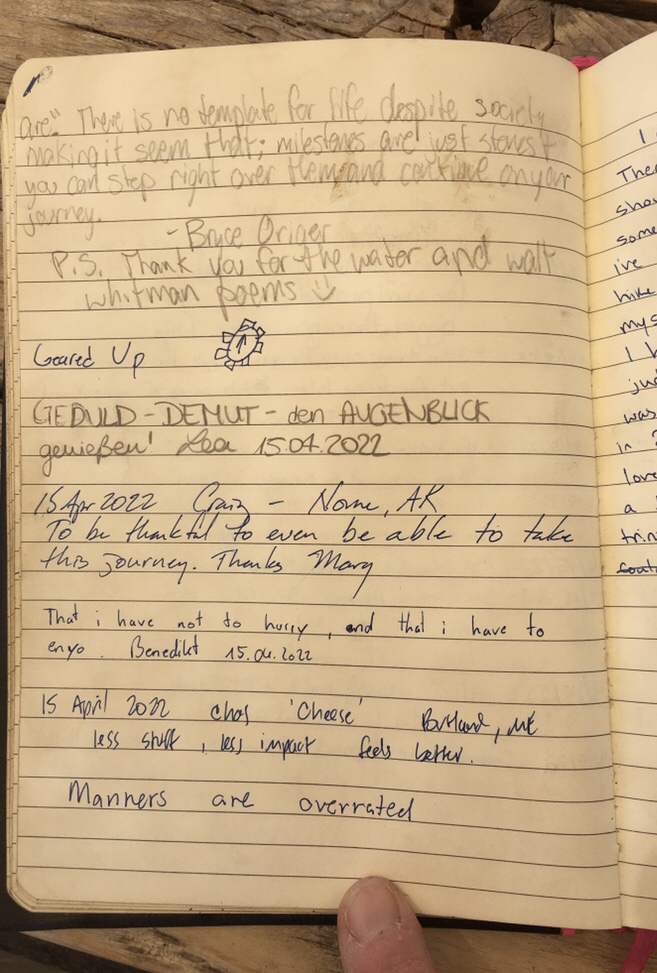 are." There is no template for life despite society
making it seem that; milestones are just stones &
you can step right over them and continue on your
journey.
- Bruce
P.S. Thank you for the water and walt
whitman poems
Geared Up
GEDULD - DEMUT - den AUGENBLICK
genießen! Lea 15.04.2022
15 Apr 2022 Craig - Nome, AK
To be thankful to even be able to take
this journey. Thanks Mary
That i have not to hurry, and that i have to
enyo. Benedikt 15.04.2022
15 April 2022 chas 'Cheese' Portland, ME
less stuff, less impact feels better.
Manners are overrated
I
Ther
shou
some
ive
hike
mys
I
jus
was
in
love
a
trin